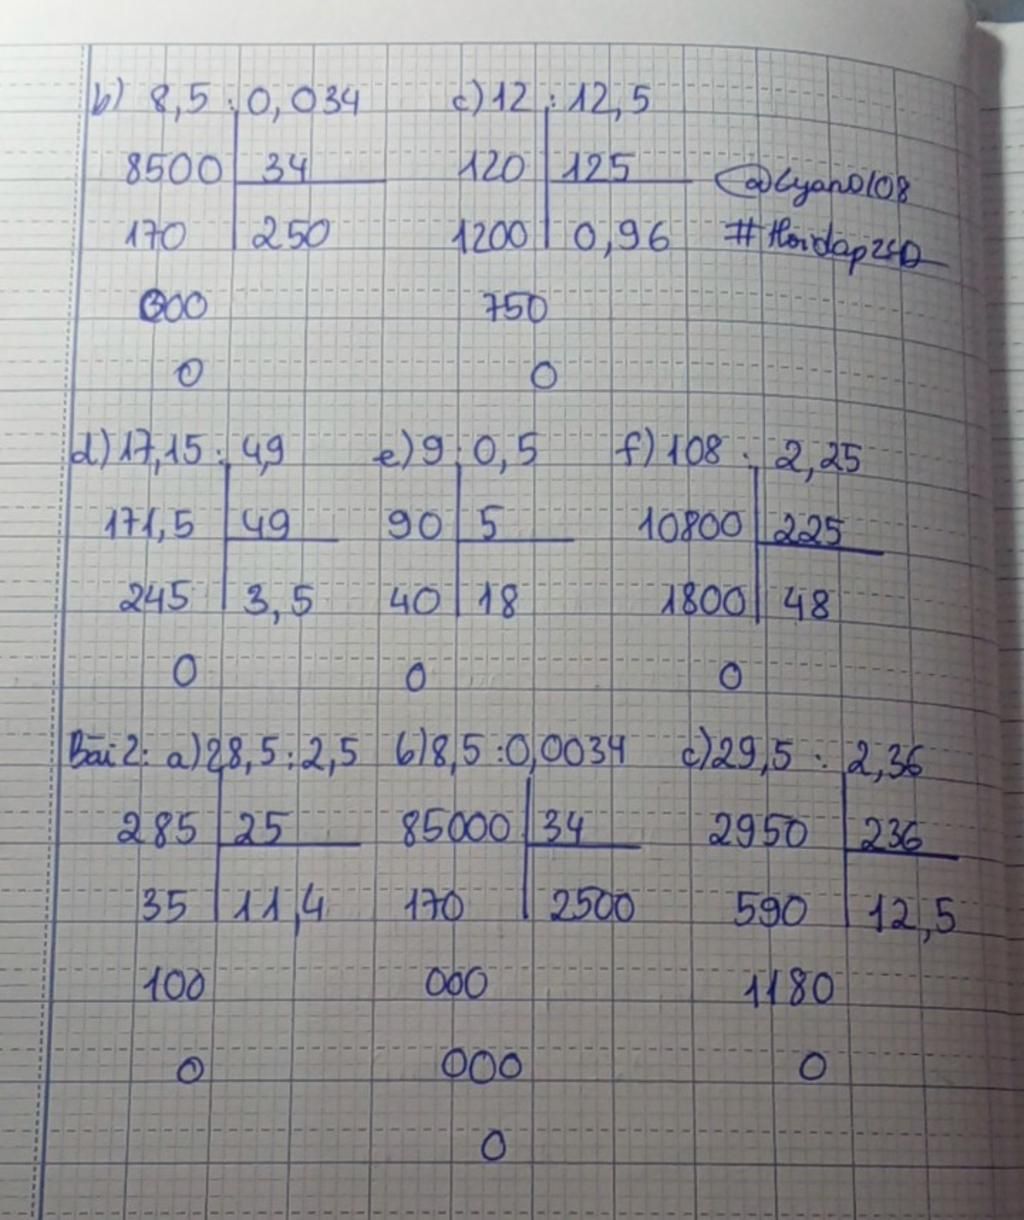 b) 8,5 : 0,034 c) 12 : 12,5
8500 34 120 125 @Cyan0108
170 250 1200 0,96 #Hoidap247
000 750
0 0
d) 17,15 : 4,9 e) 9 : 0,5 f) 108 : 2,25
171,5 49 90 5 10800 225
245 3,5 40 18 1800 48
0 0 0
Bài 2: a) 28,5 : 2,5 b) 8,5 : 0,0034 c) 29,5 : 2,36
285 25 85000 34 2950 236
35 11,4 170 2500 590 12,5
100 000 1180
0 000 0
0